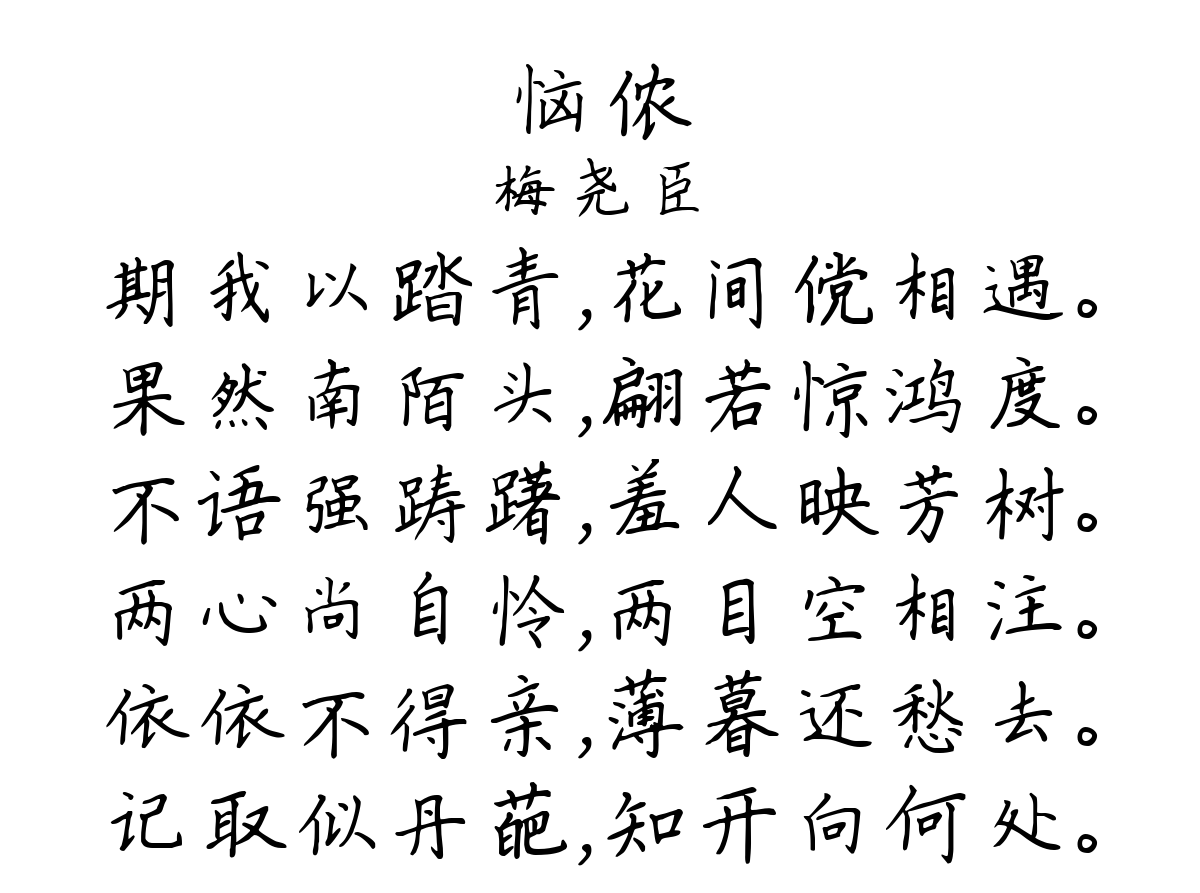 恼侬
梅尧臣
期我以踏青,花间傥相遇。
果然南陌头,翩若惊鸿度。
不语强踌躇,羞人映芳树。
两心尚自怜,两目空相注。
依依不得亲,薄暮还愁去。
记取似丹葩,知开向何处。